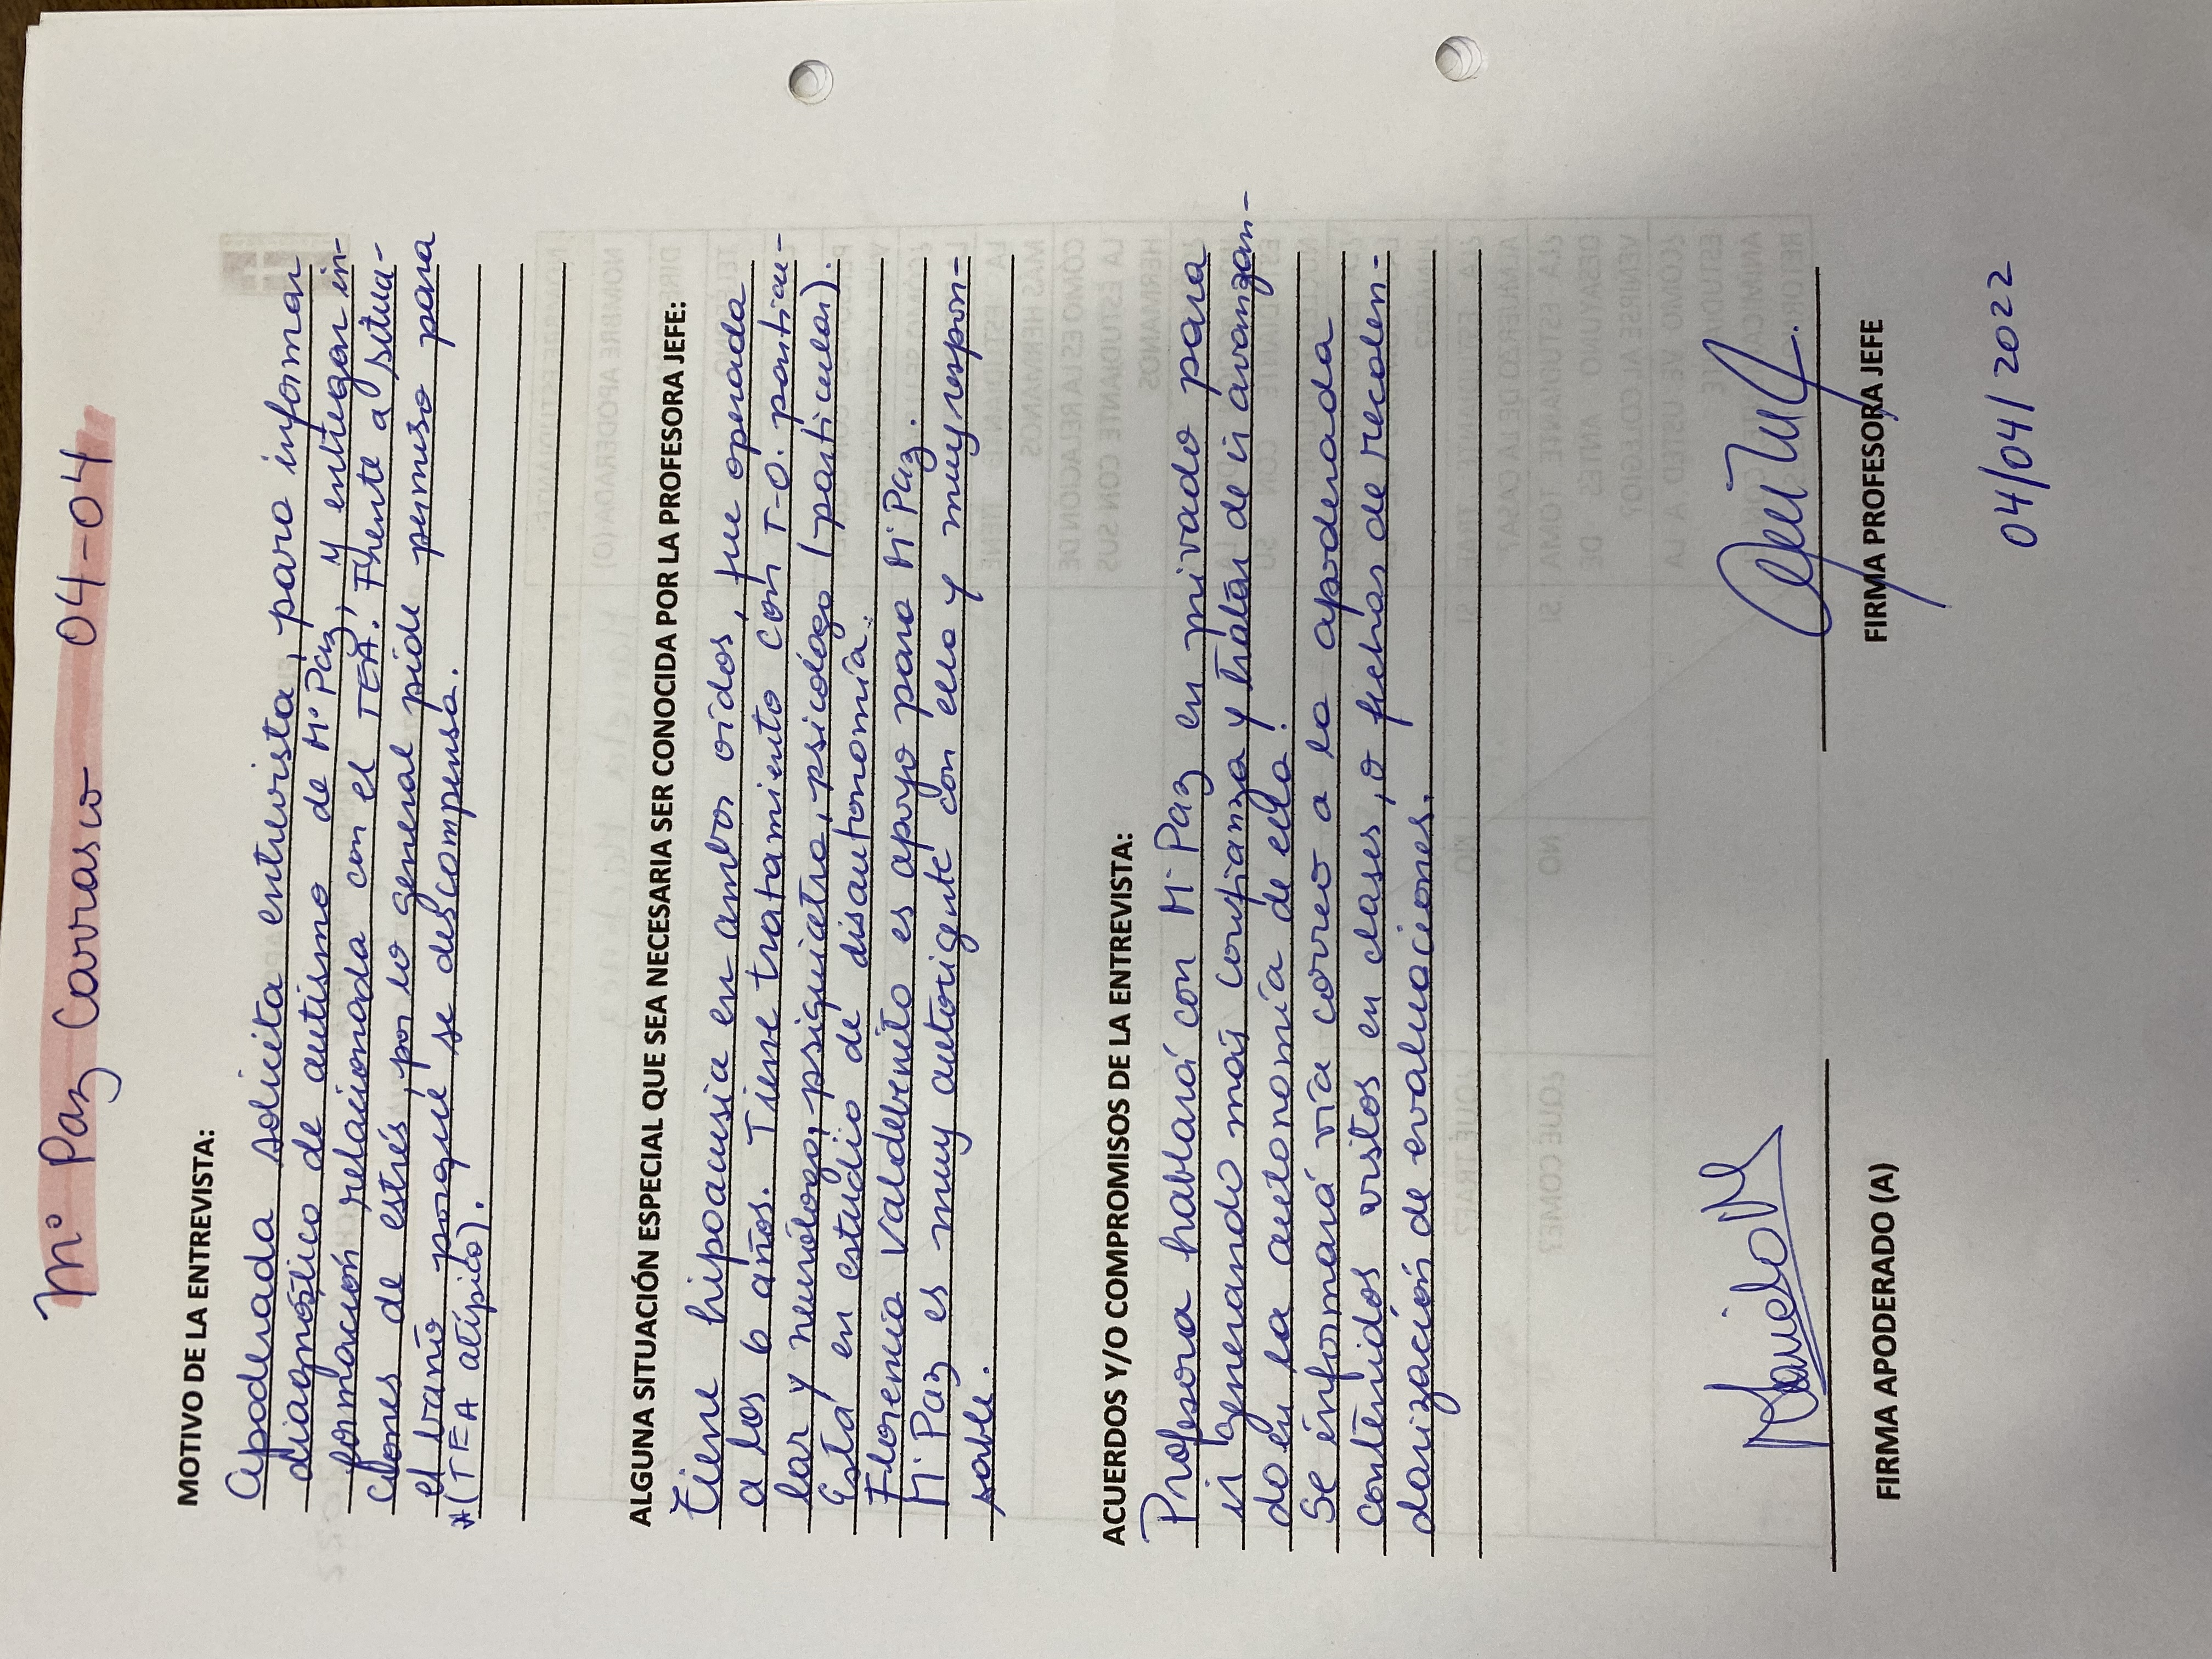 Mº Paz Carrasco 04-04
MOTIVO DE LA ENTREVISTA:
Apoderada solicita entrevista, para informar
diagnóstico de autismo de Mº Paz, y entregar in-
formación relacionada con el TEA. Frente a situa-
ciones de estrés, por lo general pide permiso para
el baño porque se descompensa.
*(TEA atípico).
ALGUNA SITUACIÓN ESPECIAL QUE SEA NECESARIA SER CONOCIDA POR LA PROFESORA JEFE:
Tiene hipoacusia en ambos oídos, fue operada
a los 6 años. Tiene tratamiento con T-O. particu-
lar y neurólogo, psiquiatra, psicólogo (particular).
Está en estudio de disautonomía.
Florencia Valdebenito es apoyo para Mº Paz.
Mº Paz es muy autoexigente con ella y muy respon-
sable.
ACUERDOS Y/O COMPROMISOS DE LA ENTREVISTA:
Profesora hablará con Mº Paz en privado para
ir generando más confianza y tratar de ir avanzan-
do en la autonomía de ella.
Se informará vía correo a la apoderada
contenidos vistos en clases, o fechas de recalen-
darización de evaluaciones.
FIRMA APODERADO (A) FIRMA PROFESORA JEFE
04/04/2022